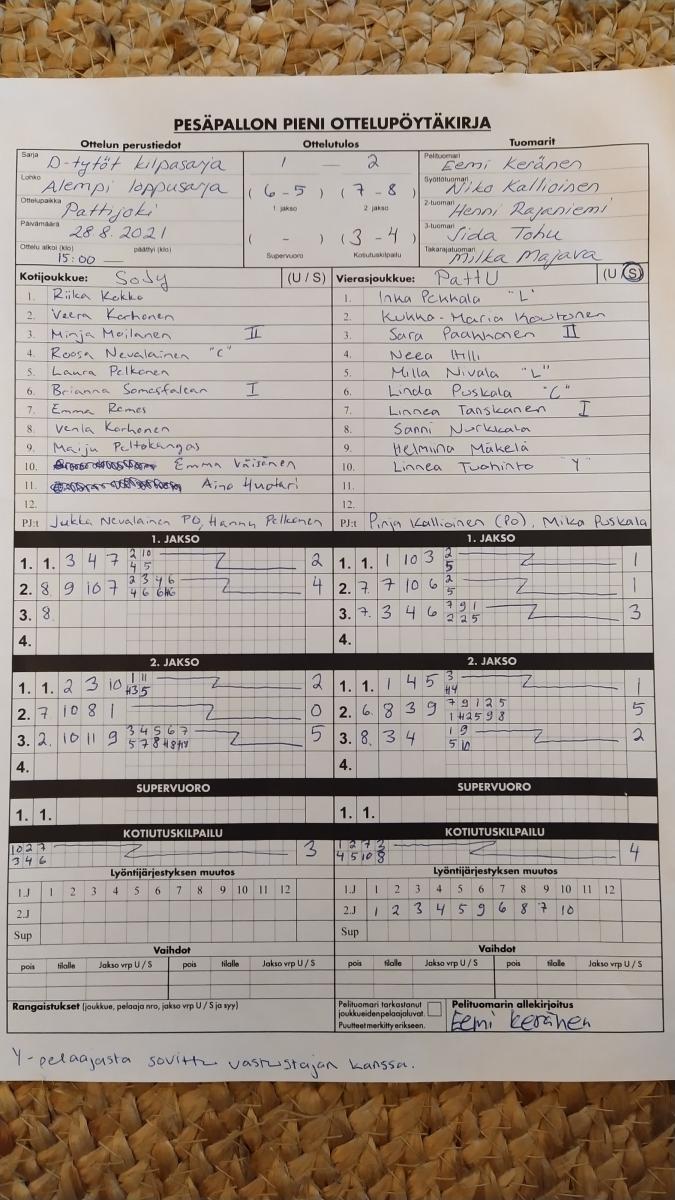 PESÄPALLON PIENI OTTELUPÖYTÄKIRJA
Ottelun perustiedot Ottelutulos Tuomarit
Sarja D-tytöt kilpasarja 1 — 2 Pelituomari Eemi Keränen
Lohko Alempi loppusarja (6-5) (7-8) Syöttötuomari Niko Kallioinen
1. jakso 2. jakso
Ottelupaikka Pattijoki 2-tuomari Henni Rajaniemi
Päivämäärä 28.8.2021 ( - ) (3-4) 3-tuomari Iida Tohu
Ottelu alkoi (klo) 15:00 päättyi (klo) Supervuoro Kotiutuskilpailu Takarajatuomari Milka Majava
Kotijoukkue: SoJy (U / S) Vierasjoukkue: PattU (U / S)
1. Riika Kokko 1. Inka Pehkala "L"
2. Veera Korhonen 2. Kukka-Maria Koutonen
3. Minja Moilanen II 3. Sara Paakkonen II
4. Roosa Nevalainen "C" 4. Neea
5. Laura Pelkonen 5. Milla Nivala "L"
6. Brianna Somesfalean I 6. Linda Puskala "C"
7. Emma Remes 7. Linnea Tanskanen I
8. Venla Korhonen 8. Sanni Nurkkala
9. Maiju Peltokangas 9. Helmiina Mäkelä
10. Emma Väisänen 10. Linnea Tuohinto "Y"
11. Aino Huotari 11.
12. 12.
PJ:t Jukka Nevalainen PO, Hannu Pelkonen PJ:t Pinja Kallioinen (PO), Mika Puskala
1. JAKSO 1. JAKSO
1. 1. 3 4 7 2 10 2 1. 1. 1 10 3 2 1
4 5 5
2. 8 9 10 7 2 3 4 6 4 2. 7. 7 10 6 2 1
4 6 5
3. 8. 3. 7. 3 4 6 7 9 1 3
2 2 5
4. 4.
2. JAKSO 2. JAKSO
1. 1. 2 3 10 1 11 2 1. 1. 1 4 5 3 1
H3 5 H4
2. 7 10 8 1 0 2. 6. 8 3 9 7 9 1 2 5 5
1 H2 5 9 8
3. 2. 10 11 9 3 4 5 6 7 5 3. 8. 3 4 1 9 2
5 7 8 5 10
4. 4.
SUPERVUORO SUPERVUORO
1. 1. 1. 1.
KOTIUTUSKILPAILU KOTIUTUSKILPAILU
10 2 7 3 1 2 7 3 4
3 4 6 4 5 10 8
Lyöntijärjestyksen muutos Lyöntijärjestyksen muutos
1.J 1 2 3 4 5 6 7 8 9 10 11 12 1.J 1 2 3 4 5 6 7 8 9 10 11 12
2.J 2.J 1 2 3 4 5 9 6 8 7 10
Sup Sup
Vaihdot Vaihdot
pois tilalle Jakso vrp U / S pois tilalle Jakso vrp U / S pois tilalle Jakso vrp U / S pois tilalle Jakso vrp U / S
Rangaistukset (joukkue, pelaaja nro, jakso vrp U / S ja syy) Pelituomari tarkastanut Pelituomarin allekirjoitus
joukkueidenpelaajaluvat.
Puutteet merkitty erikseen. Eemi Keränen
Y-pelaajasta sovittu vastustajan kanssa.